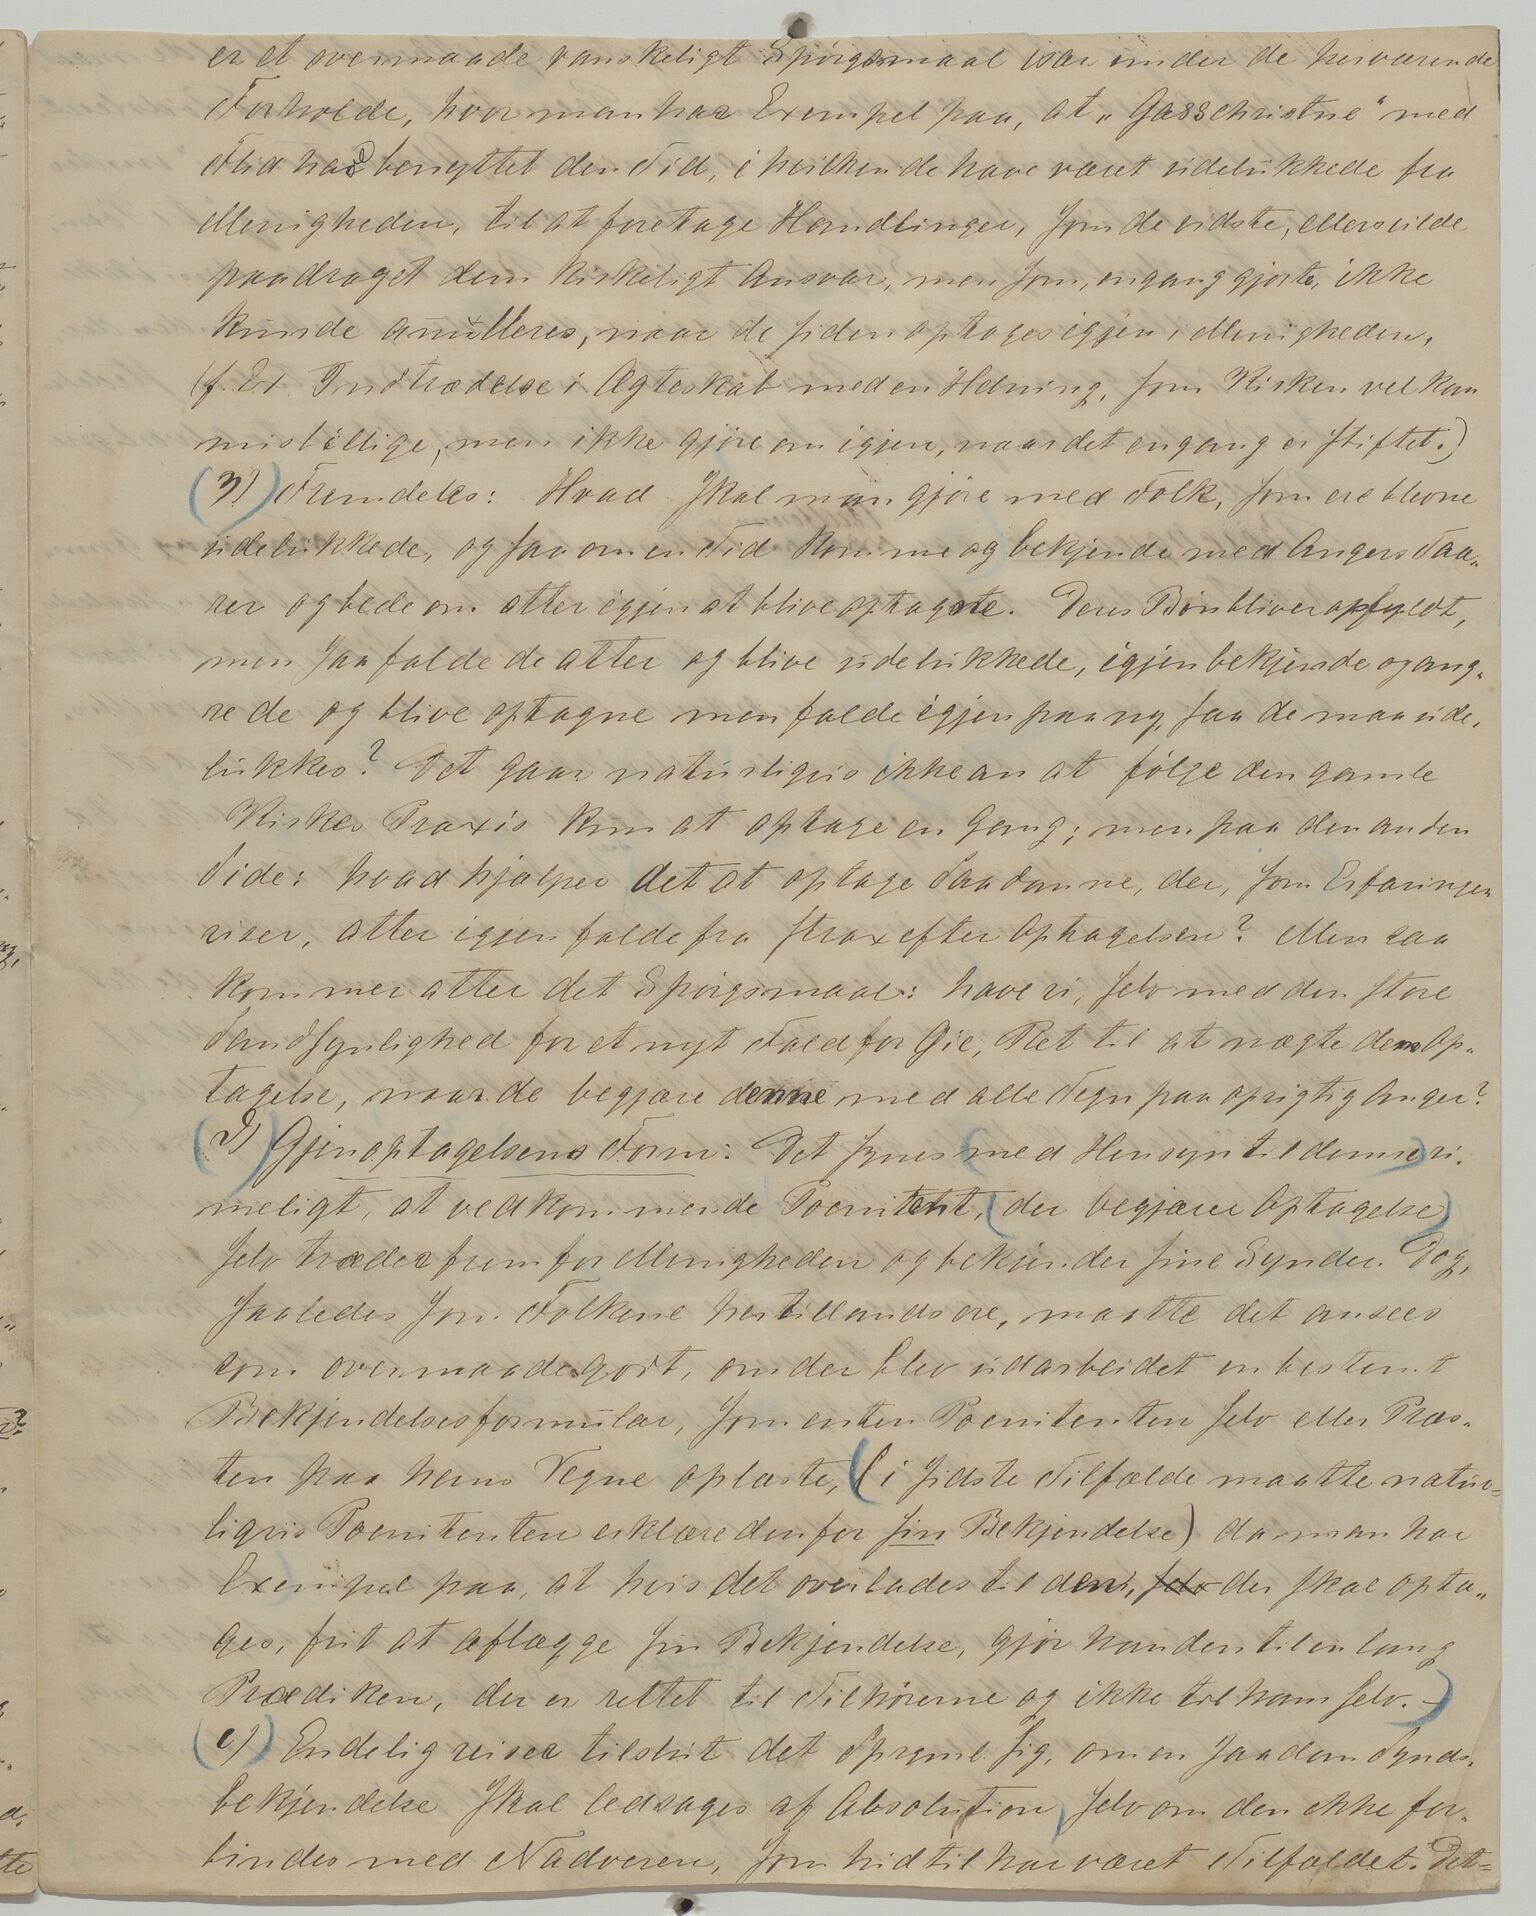 er et overmaade vanskeligt Spørgsmaal især under de herværende
Forholde, hvor man har Exempel paa, at „Gasschristne" med
Flid har benyttet den Tid, i hvilken de have været udelukkede fra
Menigheden, til at foretage Handlinger, som de vidste, ellers vilde
paadraget dem kirkeligt Ansvar, men som, engang gjorte, ikke
kunde anulleres, naar de siden optages igjen i Menigheden,
(f. Ex. Indtrædelse i Ægteskab med en Hedning, som Kirken vel kan
misbillige, men ikke gjøre om igjen, naar det engang er stiftet.)
3) Fremdeles: Hvad skal man gjøre med Folk, som ere blevne
udelukkede, og saa om en Tid komme og bekjende med Angers Taa-
rer og bede om atter igjen at blive optagne. Deres Bøn bliver opfyldt,
men saa falde de atter og blive udelukkede, igjen bekjende og ang-
rede og blive optagne men falde igjen paa ny, saa de maa ude-
lukkes? Det gaar naturligvis ikke an at følge den gamle
Kirkes Praxis kun at optage en Gang; men paa den anden
Side: hvad hjælper det at optage Saadanne, der, som Erfaringen
viser, atter igjen falde fra strax efter Optagelsen? Men saa
kommer atter det Spørgsmaal: have vi, selv med den store
Sandsynlighed for et nyt Fald for Øie, Ret til at nægte dem Op-
tagelse, naar de begjære denne med alle Tegn paa oprigtig Anger?
d) Gjenoptagelsens Form: Det synes (med Hensyn til denne) ri-
meligt, at vedkommende Poenitent, (der begjærer Optagelse)
selv træder frem for Menigheden og bekjender sine Synder. Dog,
saaledes som Folkene hertillands ere, maatte det ansees
som overmaade godt, om der blev udarbeidet en bestemt
Bekjendelsesformular, som enten Poenitenten selv eller Præs-
ten paa hans Vegne oplæste, (i sidste Tilfælde maatte natur-
ligvis Poenitenten erklære den for sin Bekjendelse) da man har
Exempel paa, at hvis det overlades til den, selv der skal opta-
ges, frit at aflægge sin Bekjendelse, gjør han den til en lang
Prædiken, der er rettet til Tilhørerne og ikke til ham selv. -)
e) Endelig reiser tilslut det Sprgml. sig, om en saadan Synds-
bekjendelse skal ledsages af Absolution, selv om den ikke for-
bindes med Nadveren, som hidtil har været Tilfældet. Det-